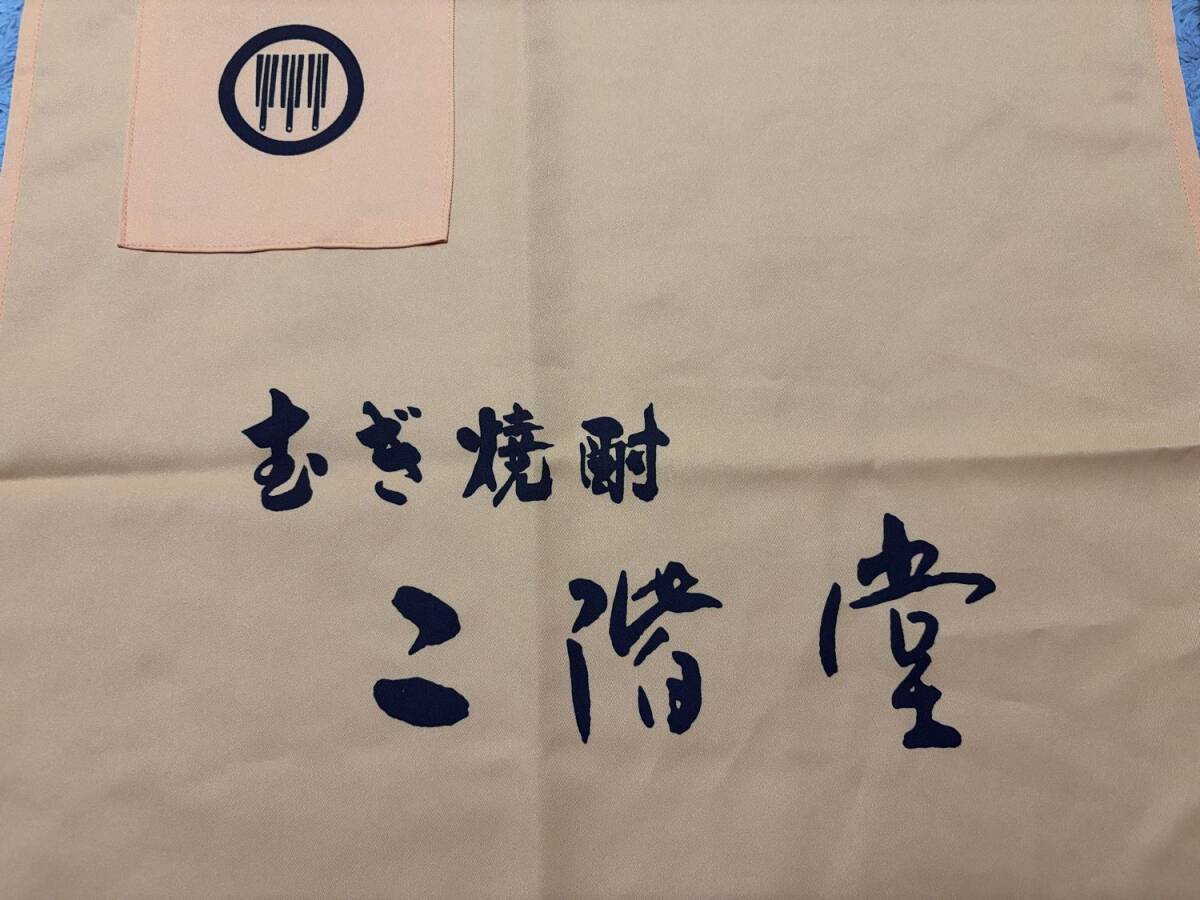 むぎ焼酎
二階堂